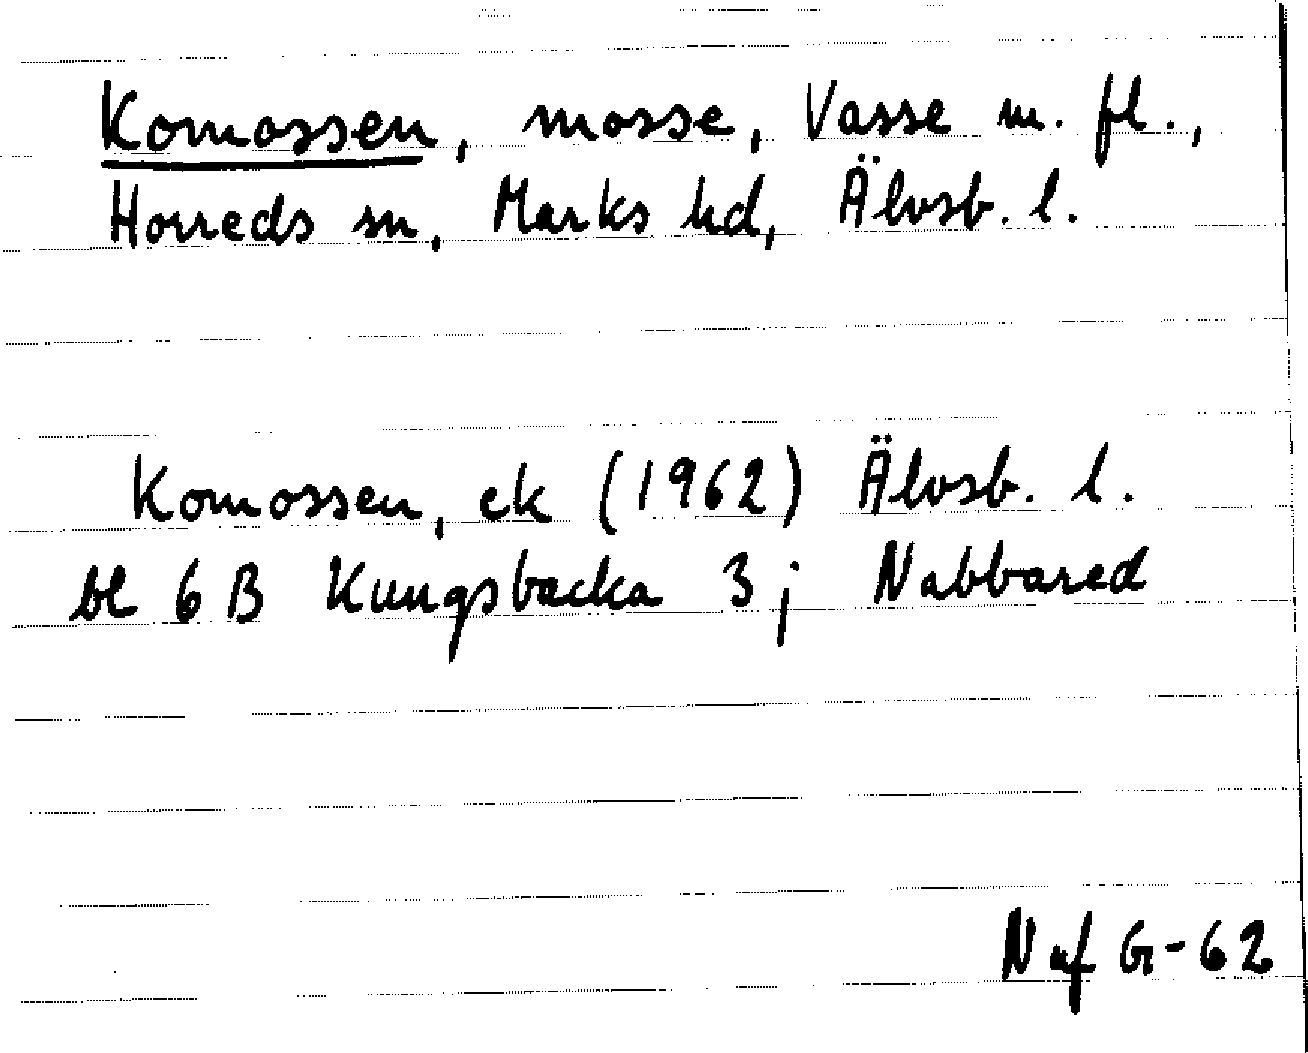 Komossen, mosse, Vasse m. fl.,
Horreds sn, Marks hd, Älvsb. l.
Komossen, ek (1962) Älvsb. l.
bl 6 B Kungsbacka 3; Nabbared
Naf G-62